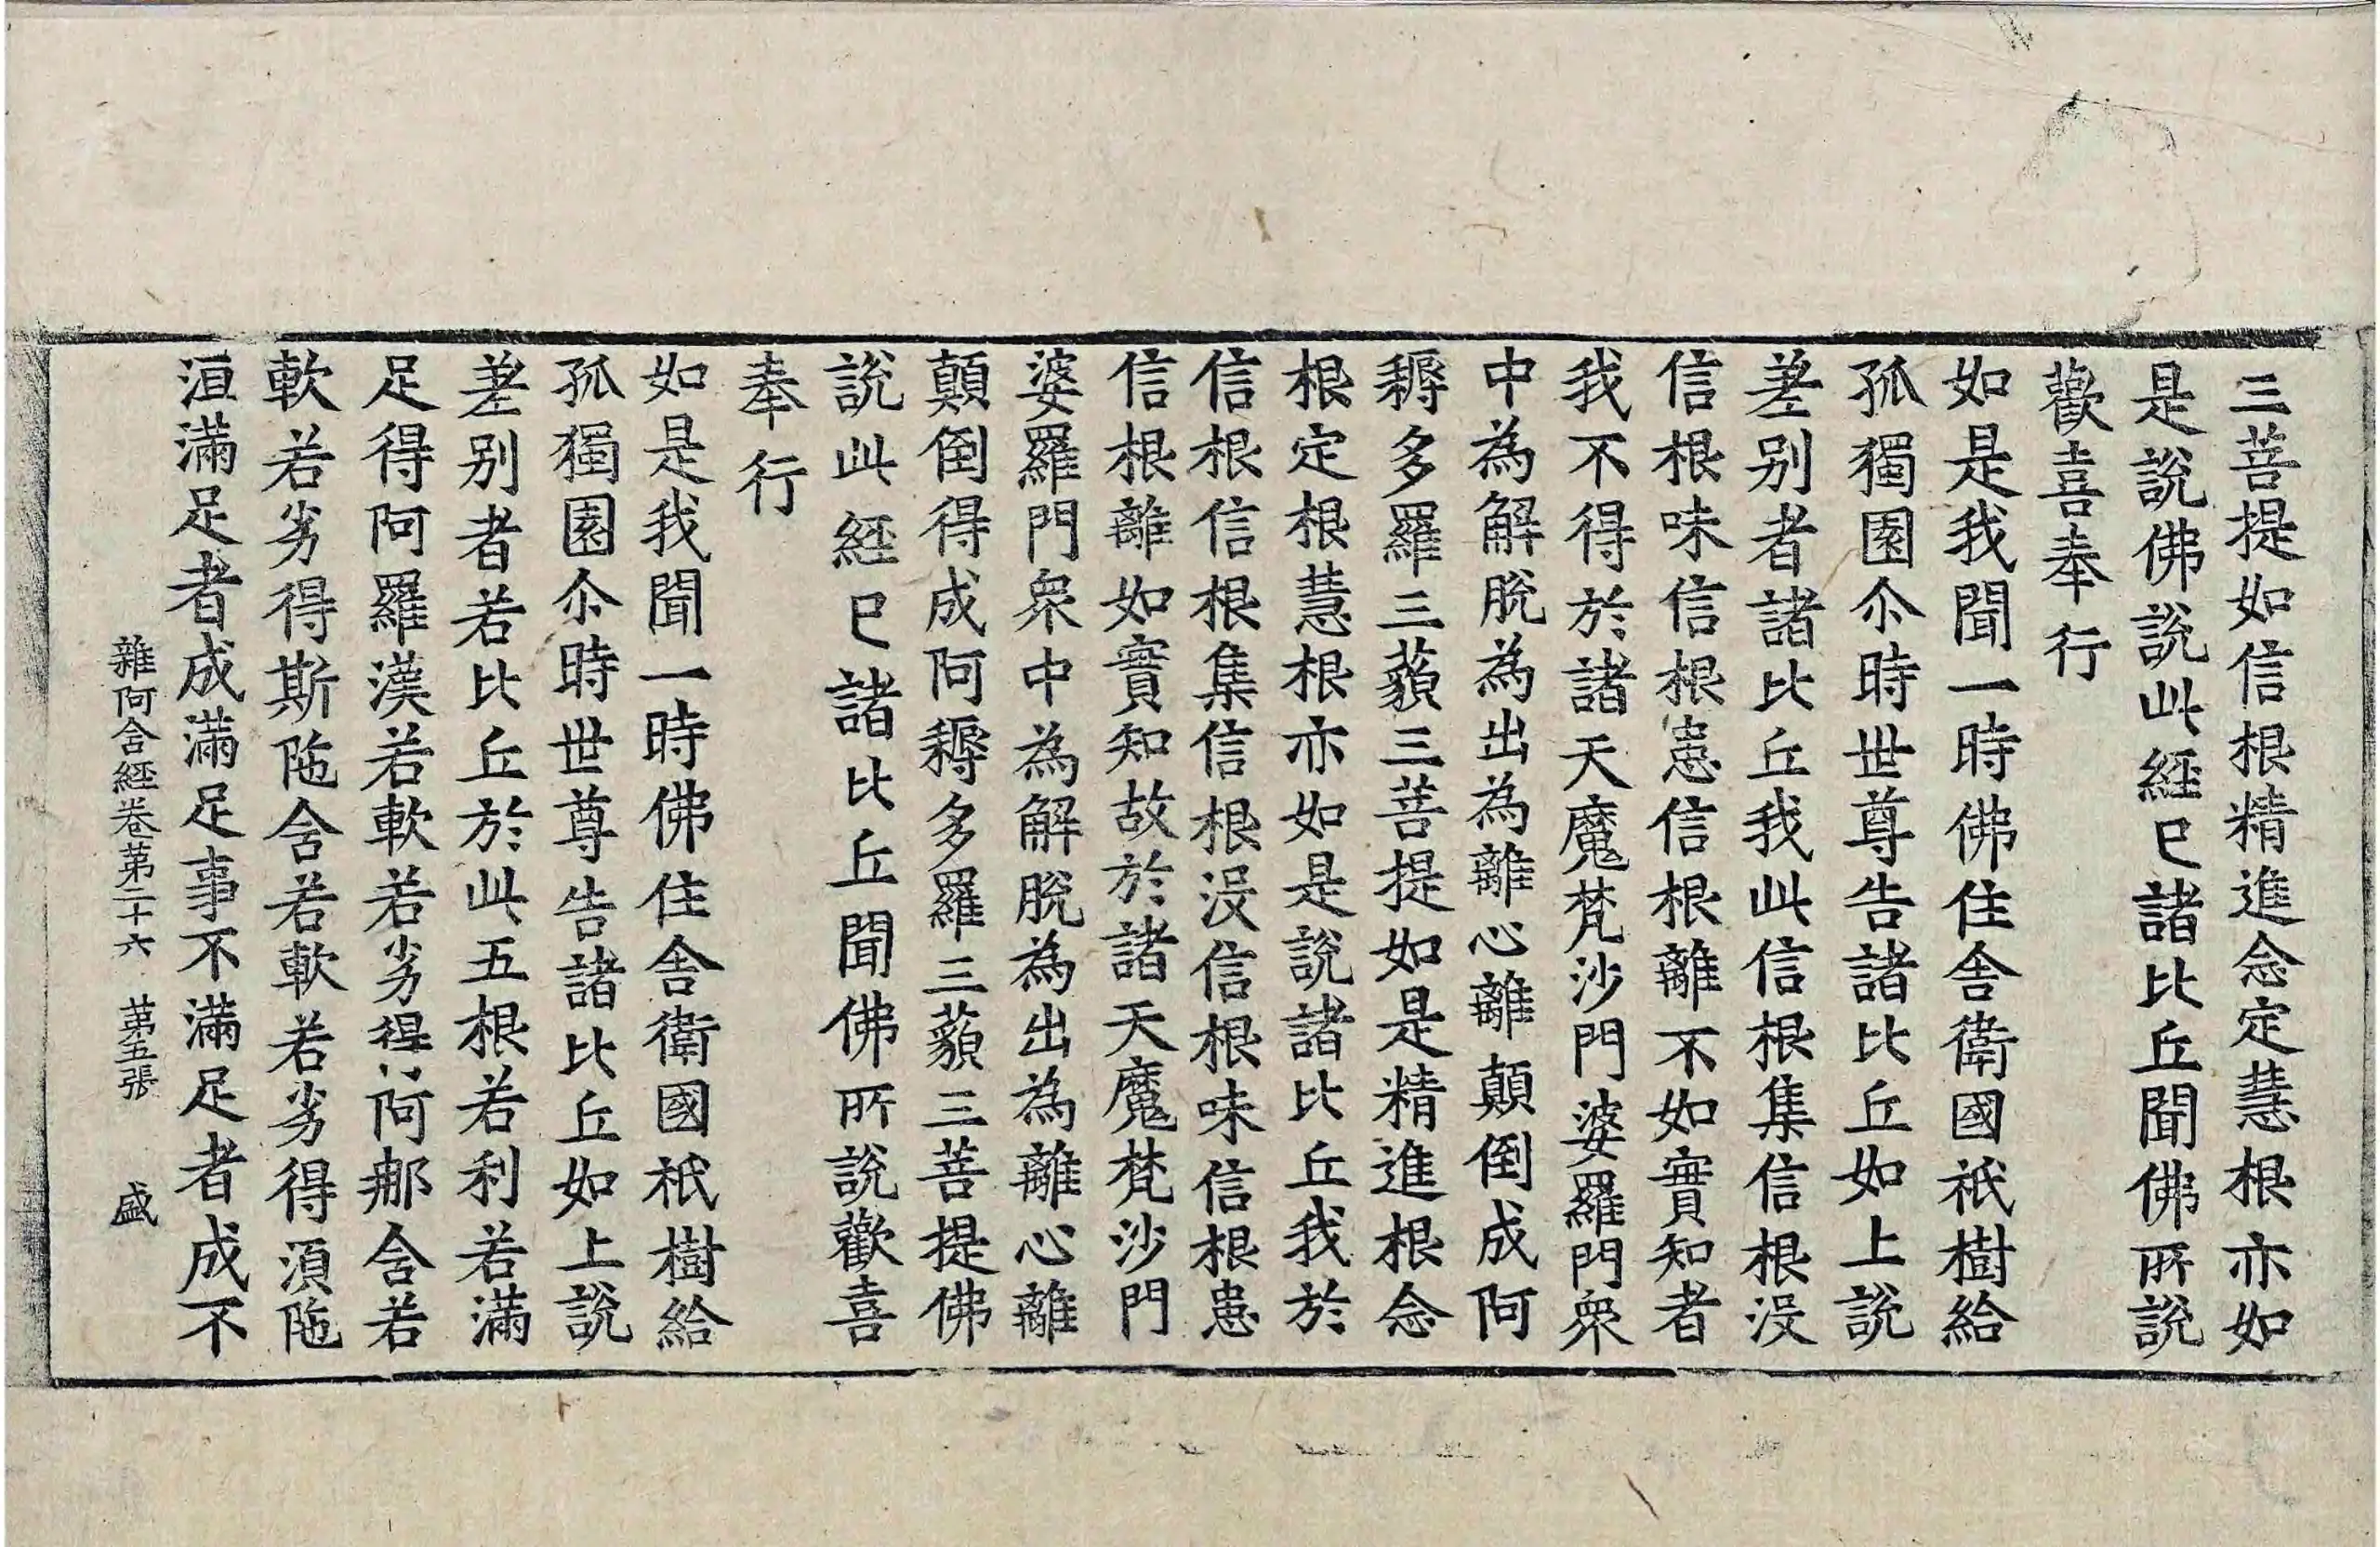 三菩提如信根精進念定慧根亦如
是說佛說此経已諸比丘聞佛所說
歡喜奉行
如是我聞一時佛住舎衛國祇樹給
孤獨園尒時世尊告諸比丘如上說
差别者諸比丘我此信根集信根没
信根味信根患信根離不如實知者
我不得於諸天魔梵沙門婆羅門衆
中為解脫為出為離心離顛倒成阿
耨多羅三藐三菩提如是精進根念
根定根慧根亦如是說諸比丘我於
信根信根集信根没信根味信根患
信根離如實知故於諸天魔梵沙門
婆羅門衆中為解脫為出為離心離
顛倒得成阿耨多羅三藐三菩提佛
說此経已諸比丘聞佛所說歡喜
奉行
如是我聞一時佛住舎衛國祇樹給
孤獨園尒時世尊告諸比丘如上說
差别者若比丘於此五根若利若滿
足得阿羅漢若軟若劣得阿那含若
軟若劣得斯陁含若軟若劣得湏陁
洹滿足者成滿足事不滿足者成不
雜阿含経卷苐二十六　苐五張　盛